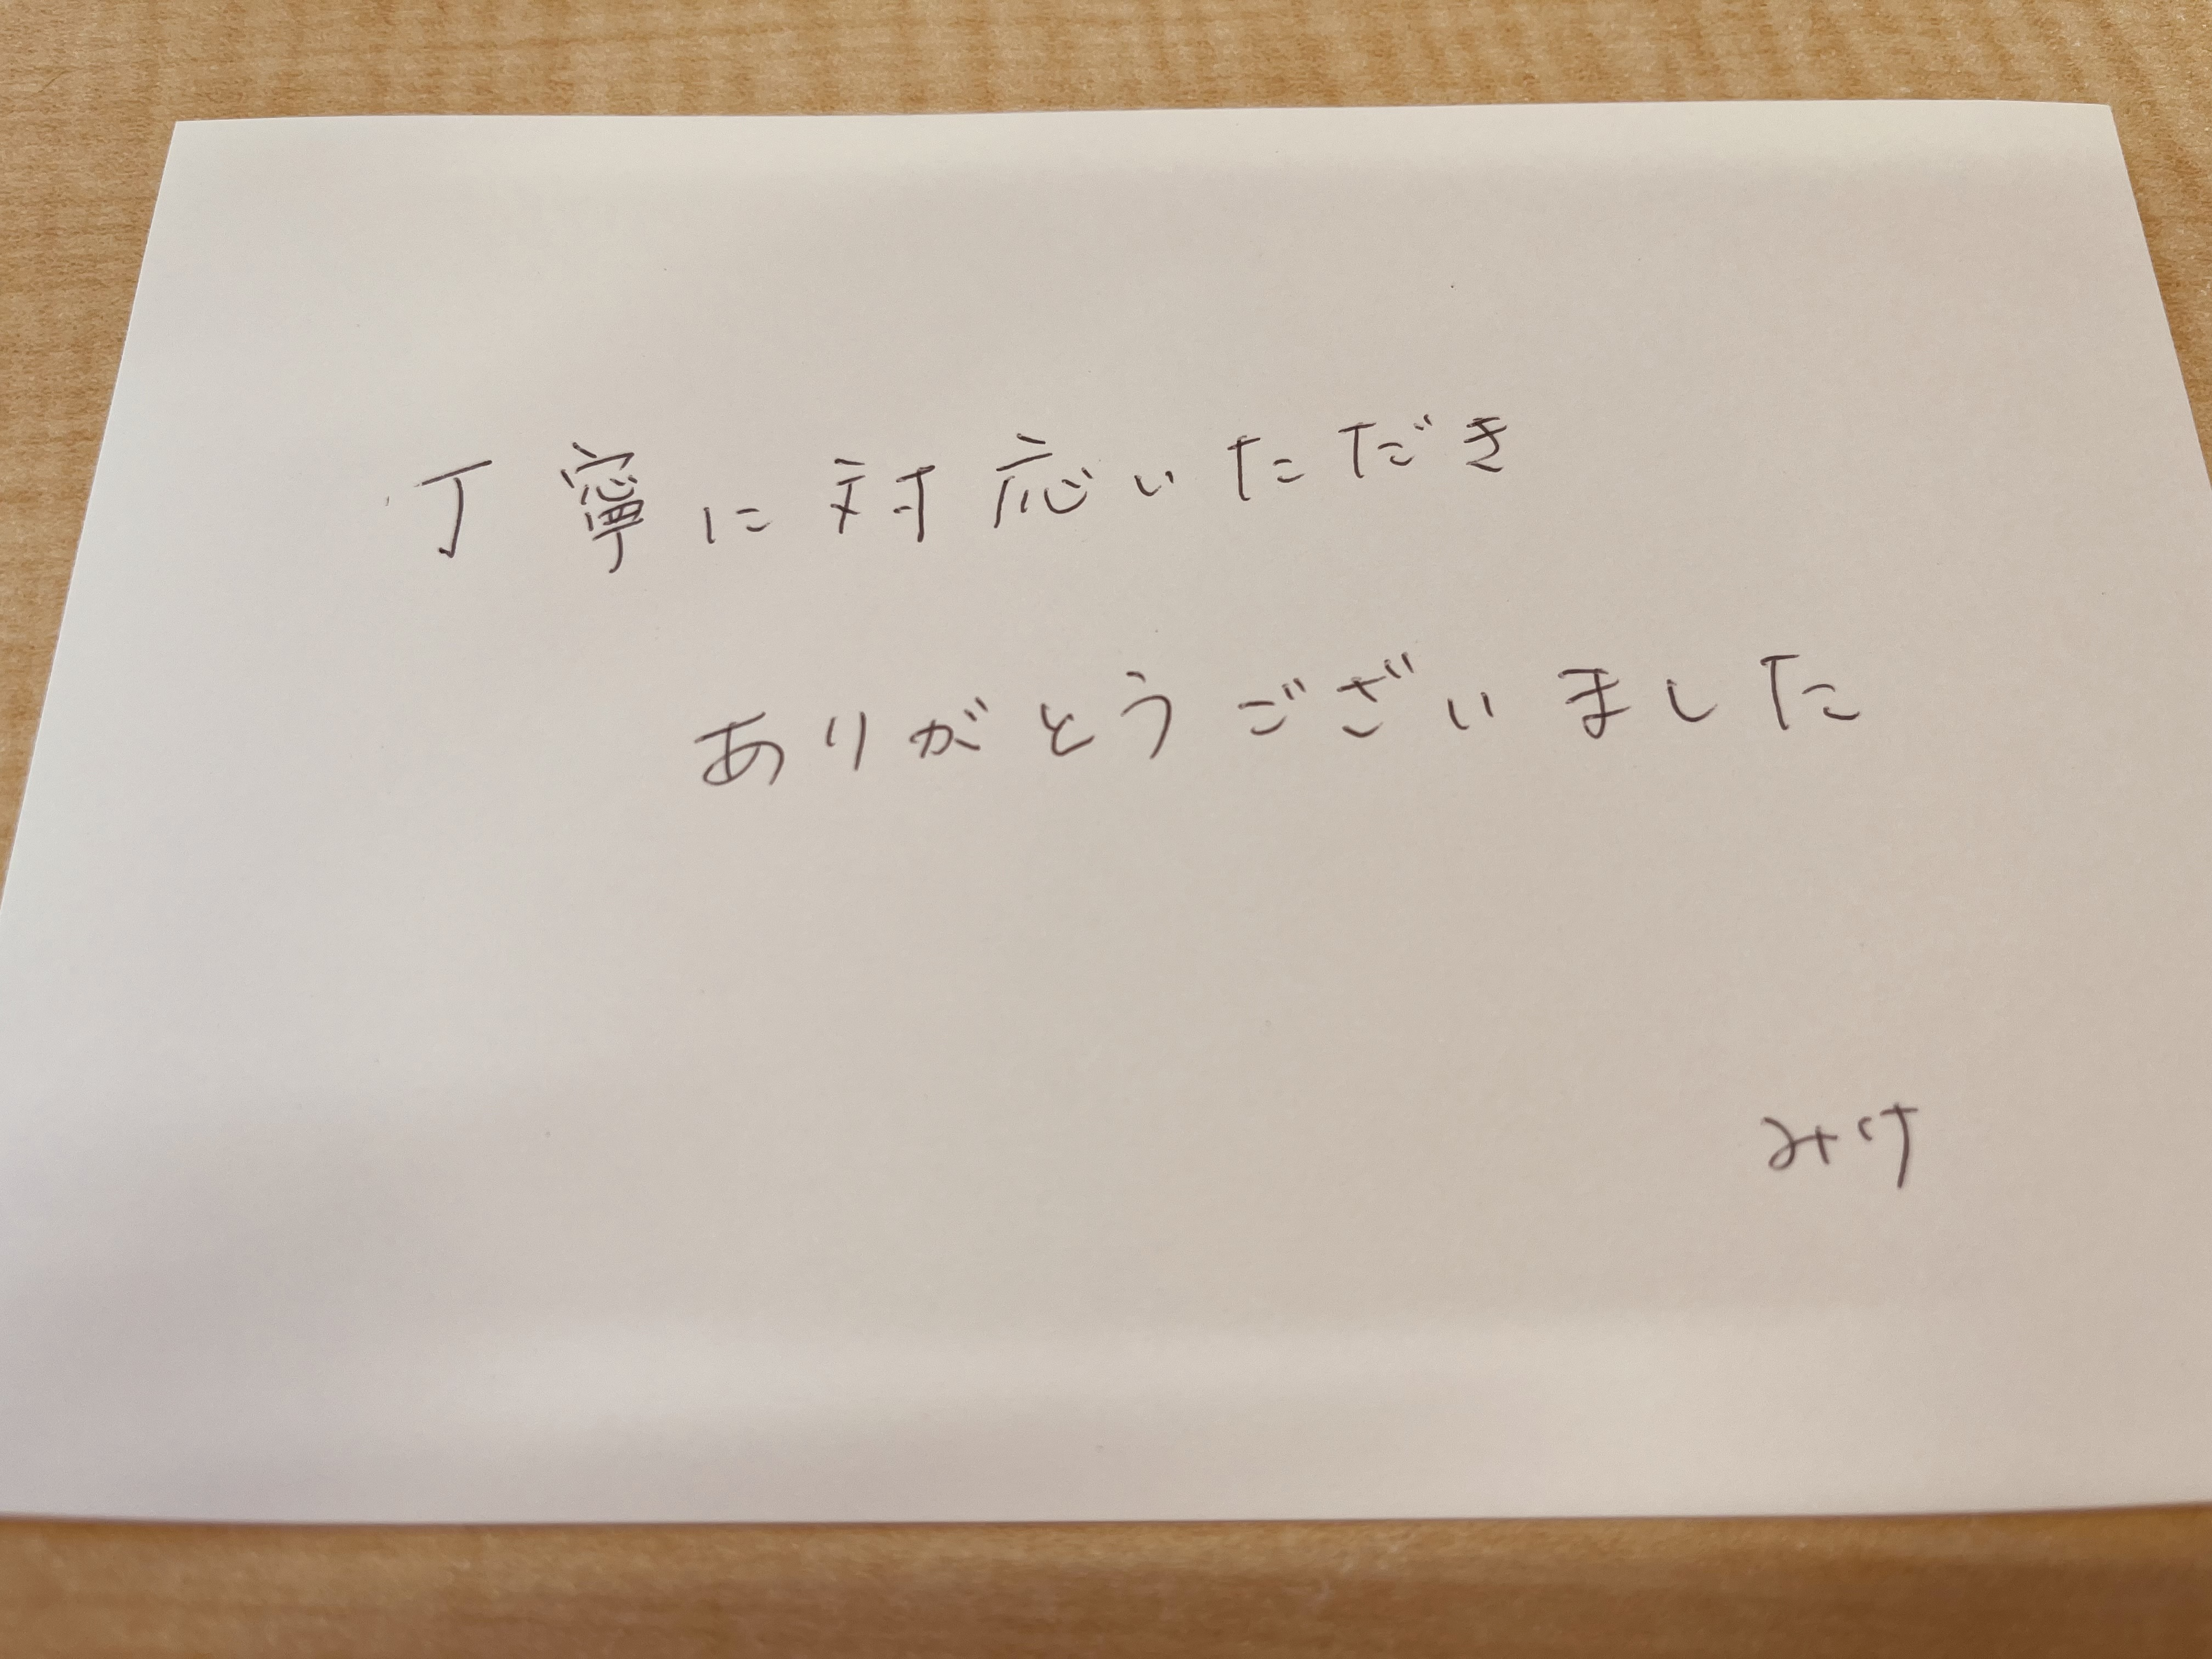 丁寧に対応いただき
ありがとうございました
みけ